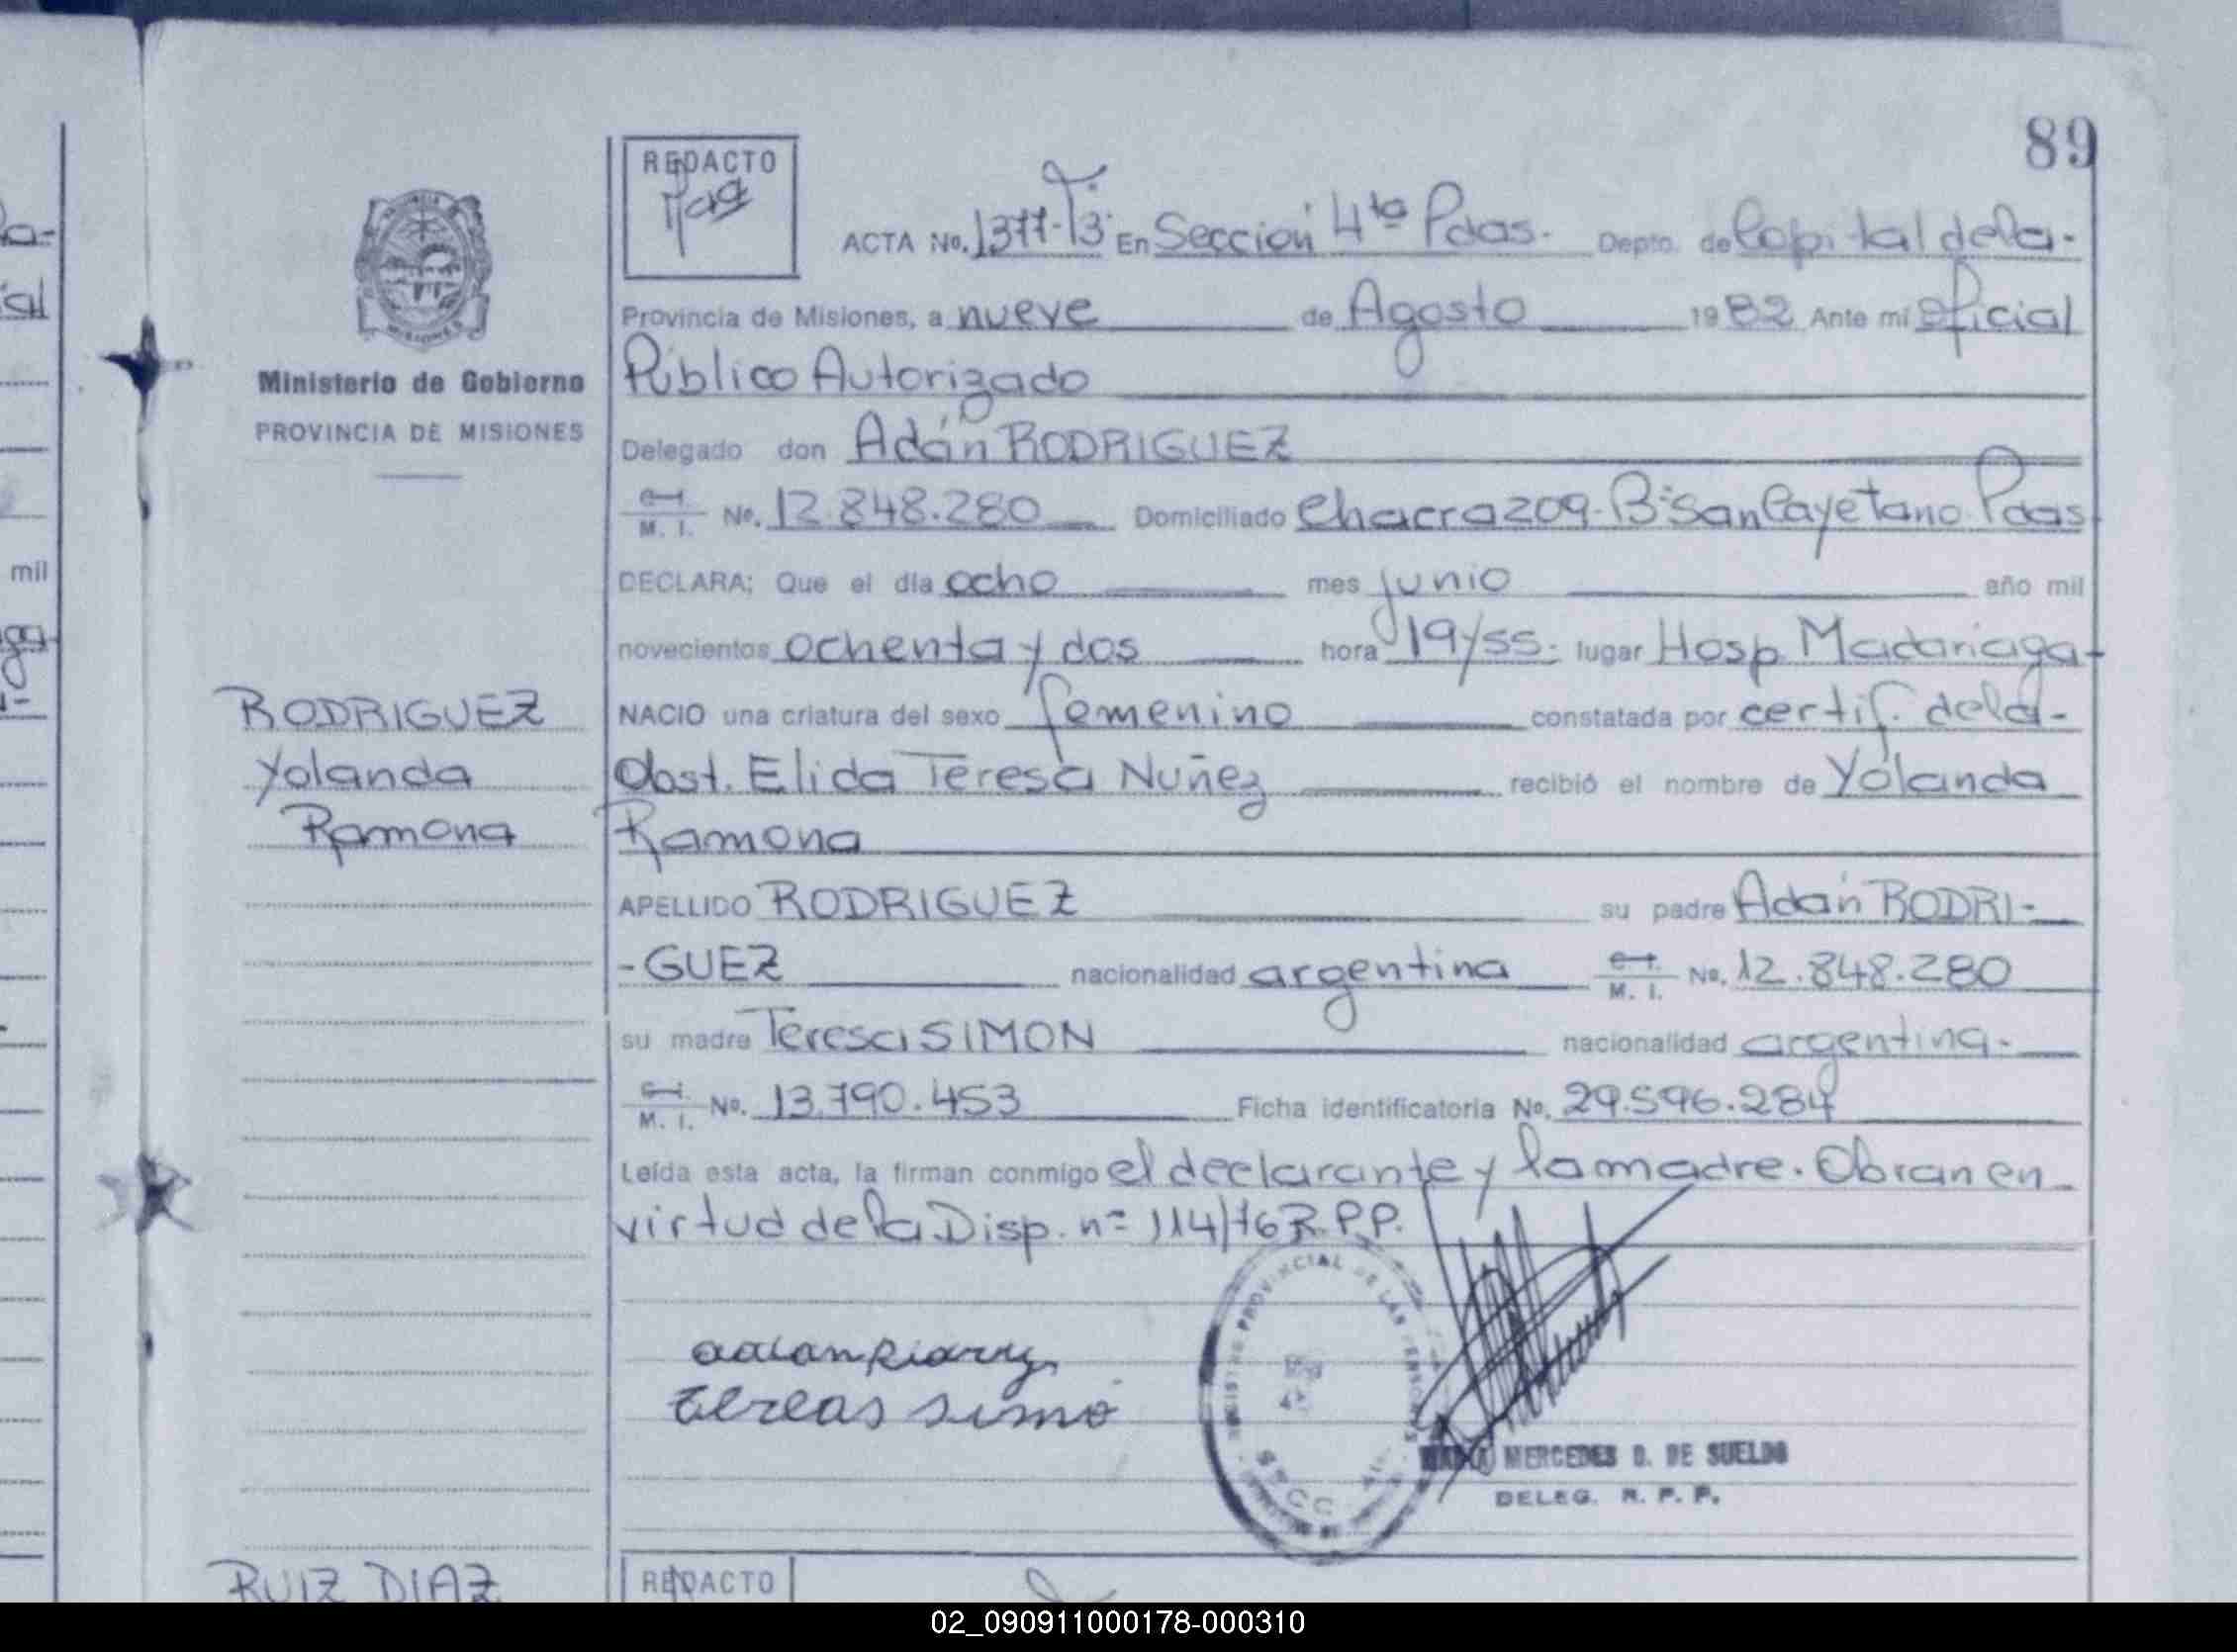 89
REDACTO
ACTA No. 1377-T3 En Sección 4ta Pdas. Depto. de Capital de la-
Provincia de Misiones, a nueve de Agosto 1982 Ante mi Oficial
Público Autorizado
Ministerio de Gobierno
PROVINCIA DE MISIONES
Delegado don Adán RODRIGUEZ
M. I. No. 12.848.280 Domiciliado Chacra 209-B° San Cayetano Pdas
DECLARA; Que el día ocho mes junio año mil
novecientos ochenta y dos hora 19/55- lugar Hosp. Madariaga-
RODRIGUEZ
Yolanda
Ramona
NACIO una criatura del sexo femenino constatada por certif. de la-
Obst. Elida Teresa Nuñez recibió el nombre de Yolanda
Ramona
APELLIDO RODRIGUEZ su padre Adán RODRI-
-GUEZ nacionalidad argentina M. I. No. 12.848.280
su madre Teresa SIMON nacionalidad argentina-
M. I. No. 13.790.453 Ficha identificatoria No. 29.596.284
Leída esta acta, la firman conmigo el declarante y la madre. Obran en
virtud de la Disp. n° 114/76 R.P.P.
tereas simo
MERCEDES D. DE SUELDO
DELEG. R. P. P.
RUIZ DIAZ
REDACTO
mil
02_090911000178-000310